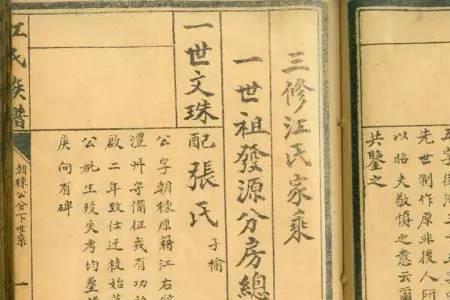 先世制作原非後人所
以昭夫敬慎之意云爾
共鑒之
三修江氏家乘
一世祖發源分房總
一世文珠
配張氏
子榆
公字朝棟原籍江右
澧州守備征戎有功
啟二年致仕迁
公妣生殁失考均塟
庚向有碑
江氏族譜
朝棟公分下世系
一